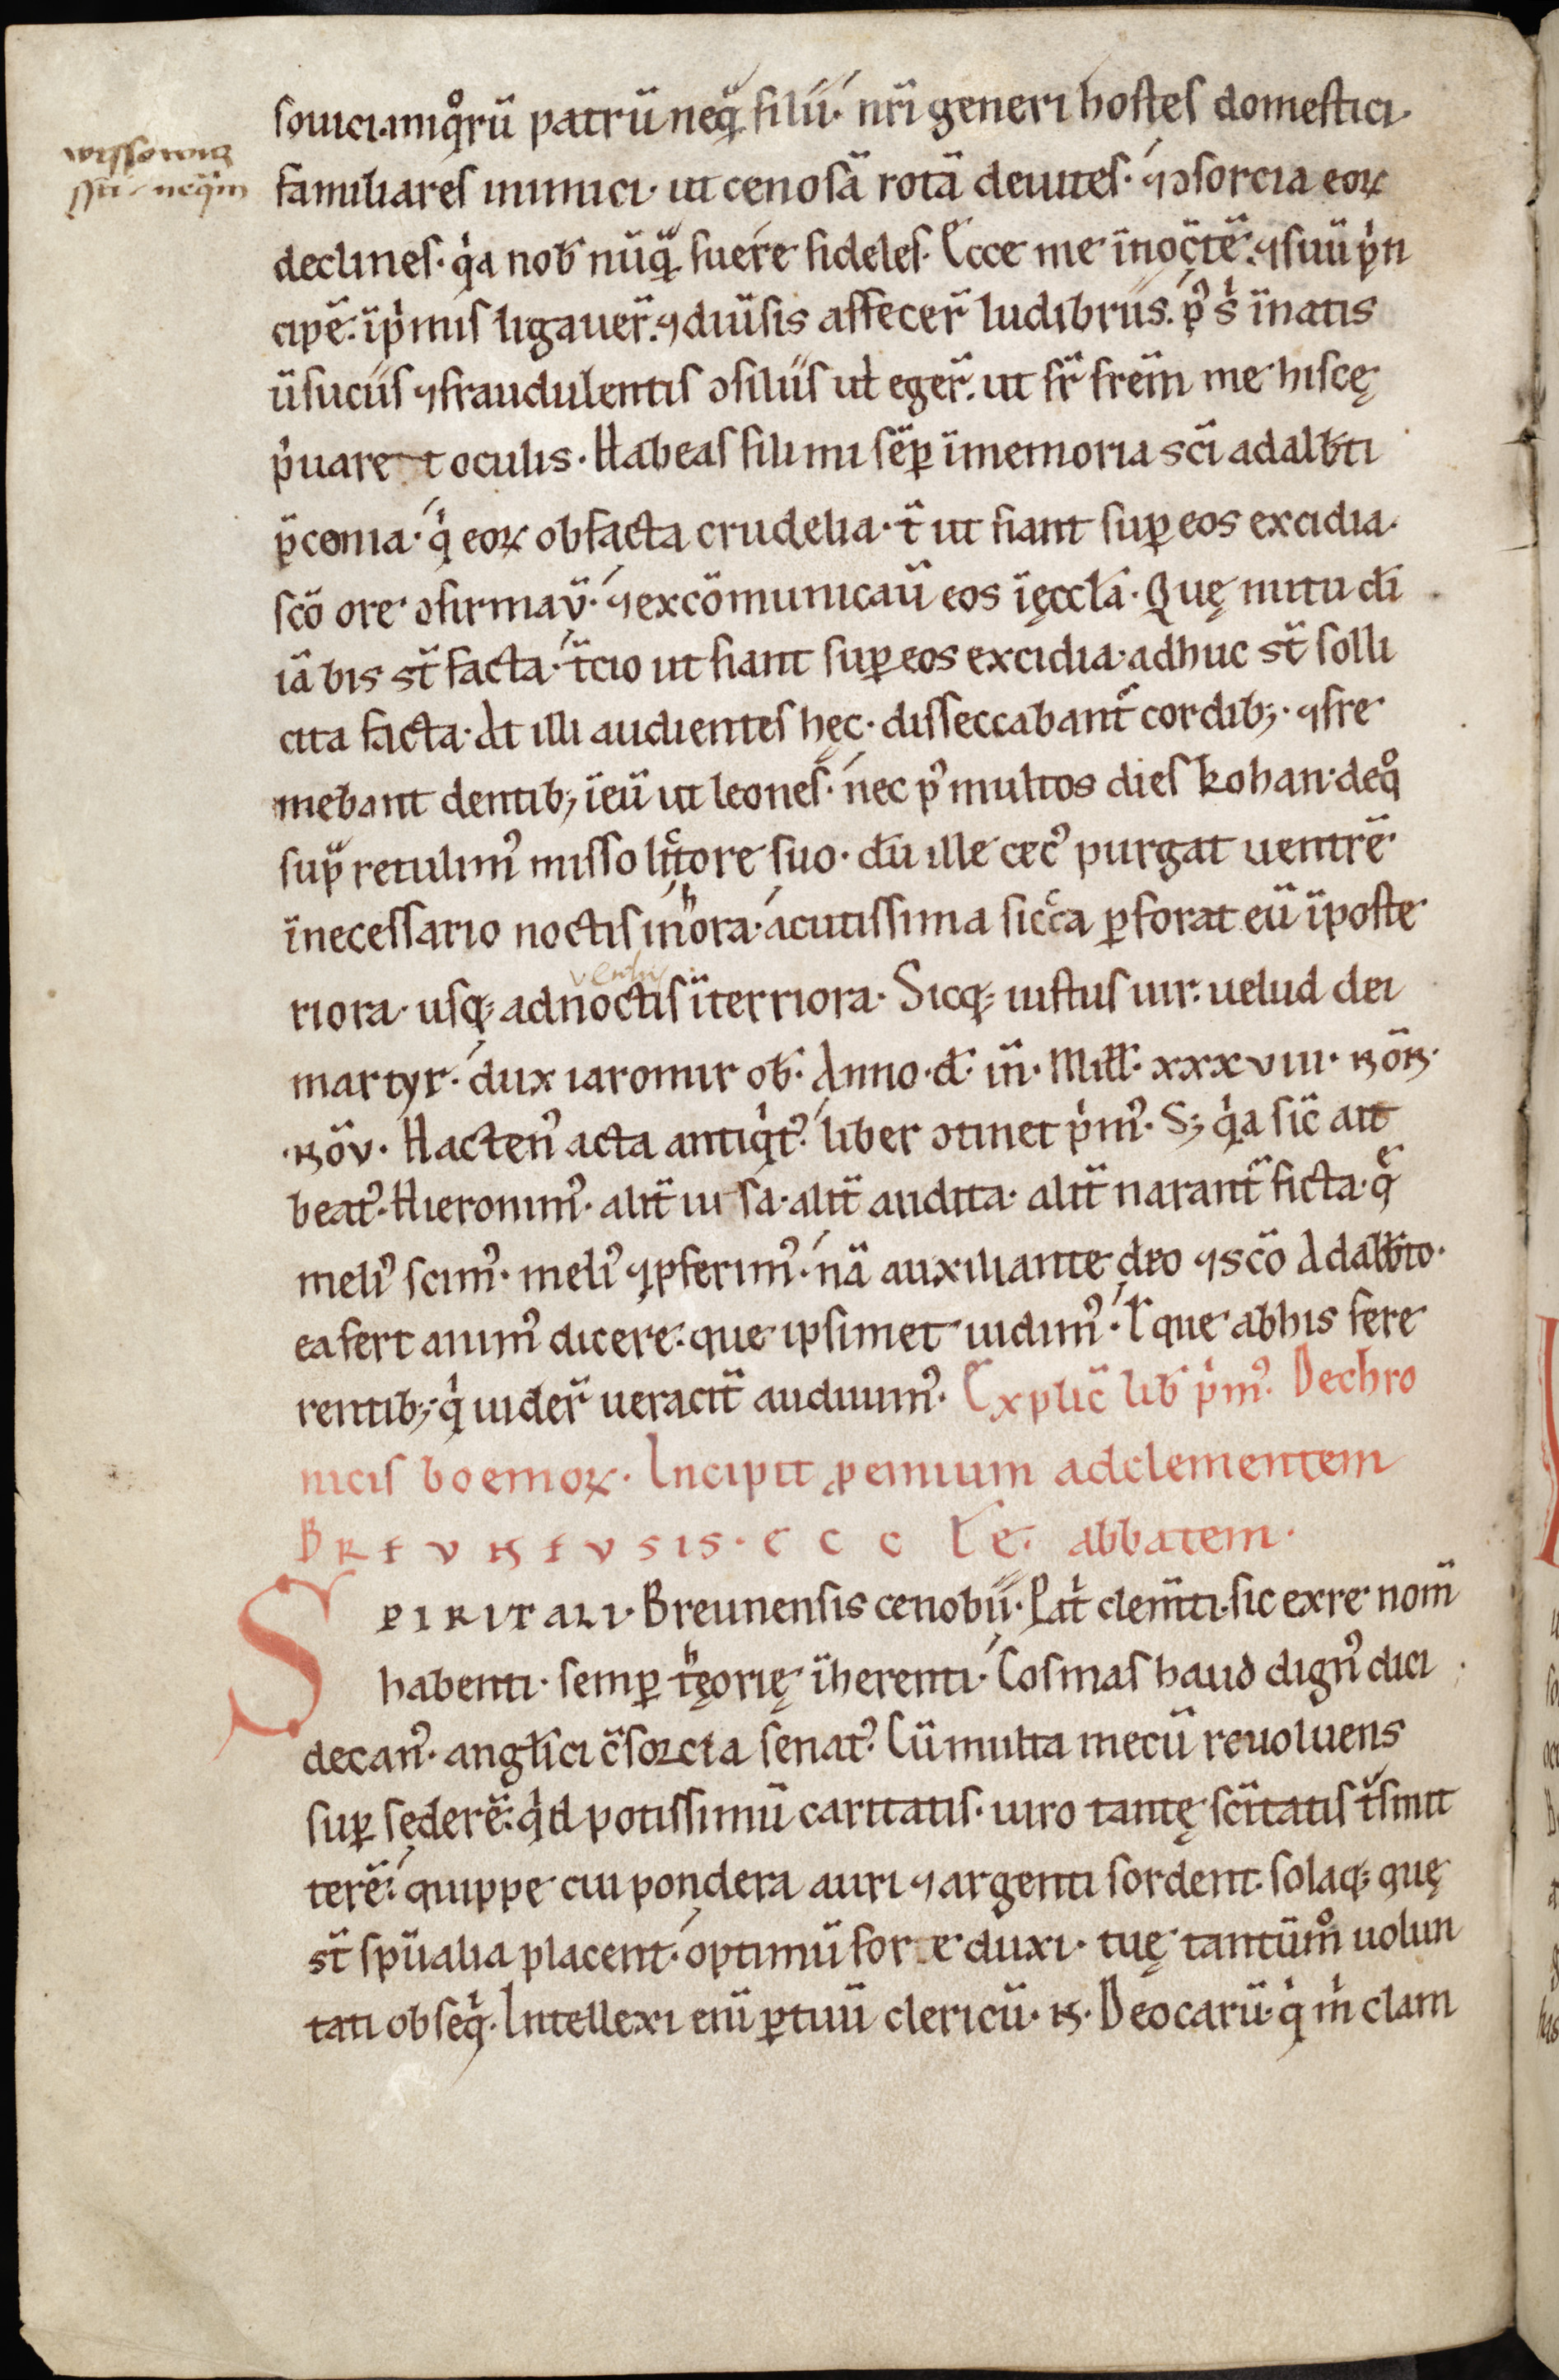 wissowiq
ssii · neq̄m
souici. iniqͦrū patrū neq̄ filii· nr̄i generi hostes domestici·
familiares inimici· ut cenosā rotā deuites· ⁊ ↄsorcia eoꝝ
declines· qⁱa nob̄ nūq̄ fuere fideles. Ecce me īnocētē. ⁊ suū pⁱn
cipē. īpⁱmis ligauer̄. ⁊ diūsis affecer̄ ludibriis. pꝰ sⁱ īnatis
ūsuciis ⁊ fraudulentis ↄsiliis ut̄ eger̄. ut fr̄ frēm me hiscę
pⁱuaret oculis. Habeas fili mi sēꝑ īmemoria sc̄i adalb̄ti
p̄conia· qⁱ eoꝝ ob facta crudelia· t̄ ut fiant suꝑ eos excidia·
sc̄o ore ↄfirmav̄· ⁊ excōmunicaū eos īęccła. Quę nutu dī
iā bis st̄ facta· t̄cio ut fiant suꝑ eos excidia· adhuc st̄ solli
cita facta. At illi audientes hęc· disseccabant̄ cordib;· ⁊ fre
mebant dentib; īeū ut leones· nec pꝰ multos dies kohan· deqͦ
sup̄ retulimꝰ misso lictore suo· dū ille cecꝰ purgat uentrē
īnecessario noctis in hora· acutissima sicca ꝑforat eū īposte
riora· usq; ad noctis īterriora. Sicq; iustus uir. uelud dei
ventris
martyr· dux iaromir ob̄. Anno· d̄· in̄· Mill̄· xxxviii· kōł·
·nōv· Hactenꝰ acta antiqⁱtꝰ. liber ↄtinet pⁱmꝰ. S; qⁱa sic̄ ait
beatꝰ. Hieronimꝰ. alit̄ uisa· alit̄ audita· alit̄ narrant̄ ficta· qͤ
meliꝰ scimꝰ· meliꝰ ⁊ ꝓferimꝰ· nā auxiliante deo ⁊ sc̄o Adalb̄to·
ea fert animꝰ dicere. que ipsimet uidimꝰ· ł que ab his fere
rentib; qⁱ uider̄ ueracit̄ audiuimꝰ. Explic̄ lib̄ pⁱmꝰ. De chro
nicis boemoꝝ. Incipit ꝓemium ad clementem
BREVNEVSIS· ECC Łę· abbatem·
SPIRITALI· Breunensis cenobii· Patⁱ clem̄ti. sic exre nom̄
habenti· semꝑ thęorię īherenti· Cosmas haud dignꝰ dici
decanꝰ· angłici c̄sorcia senatꝰ. Cū multa mecū reuoluens
suꝑ sederē. qⁱd potissimū caritatis· uiro tantę sc̄itatis t̄smit
terē. quippe cui pondera auri ⁊ argenti sordent. solaq; quę
st̄ spūalia placent· optimū fore duxi· tuę tantūmͦ uolun
tati obseqⁱ. Intellexi enī ꝑ tuū clericū· n· Deocarū· qⁱ mⁱ clam